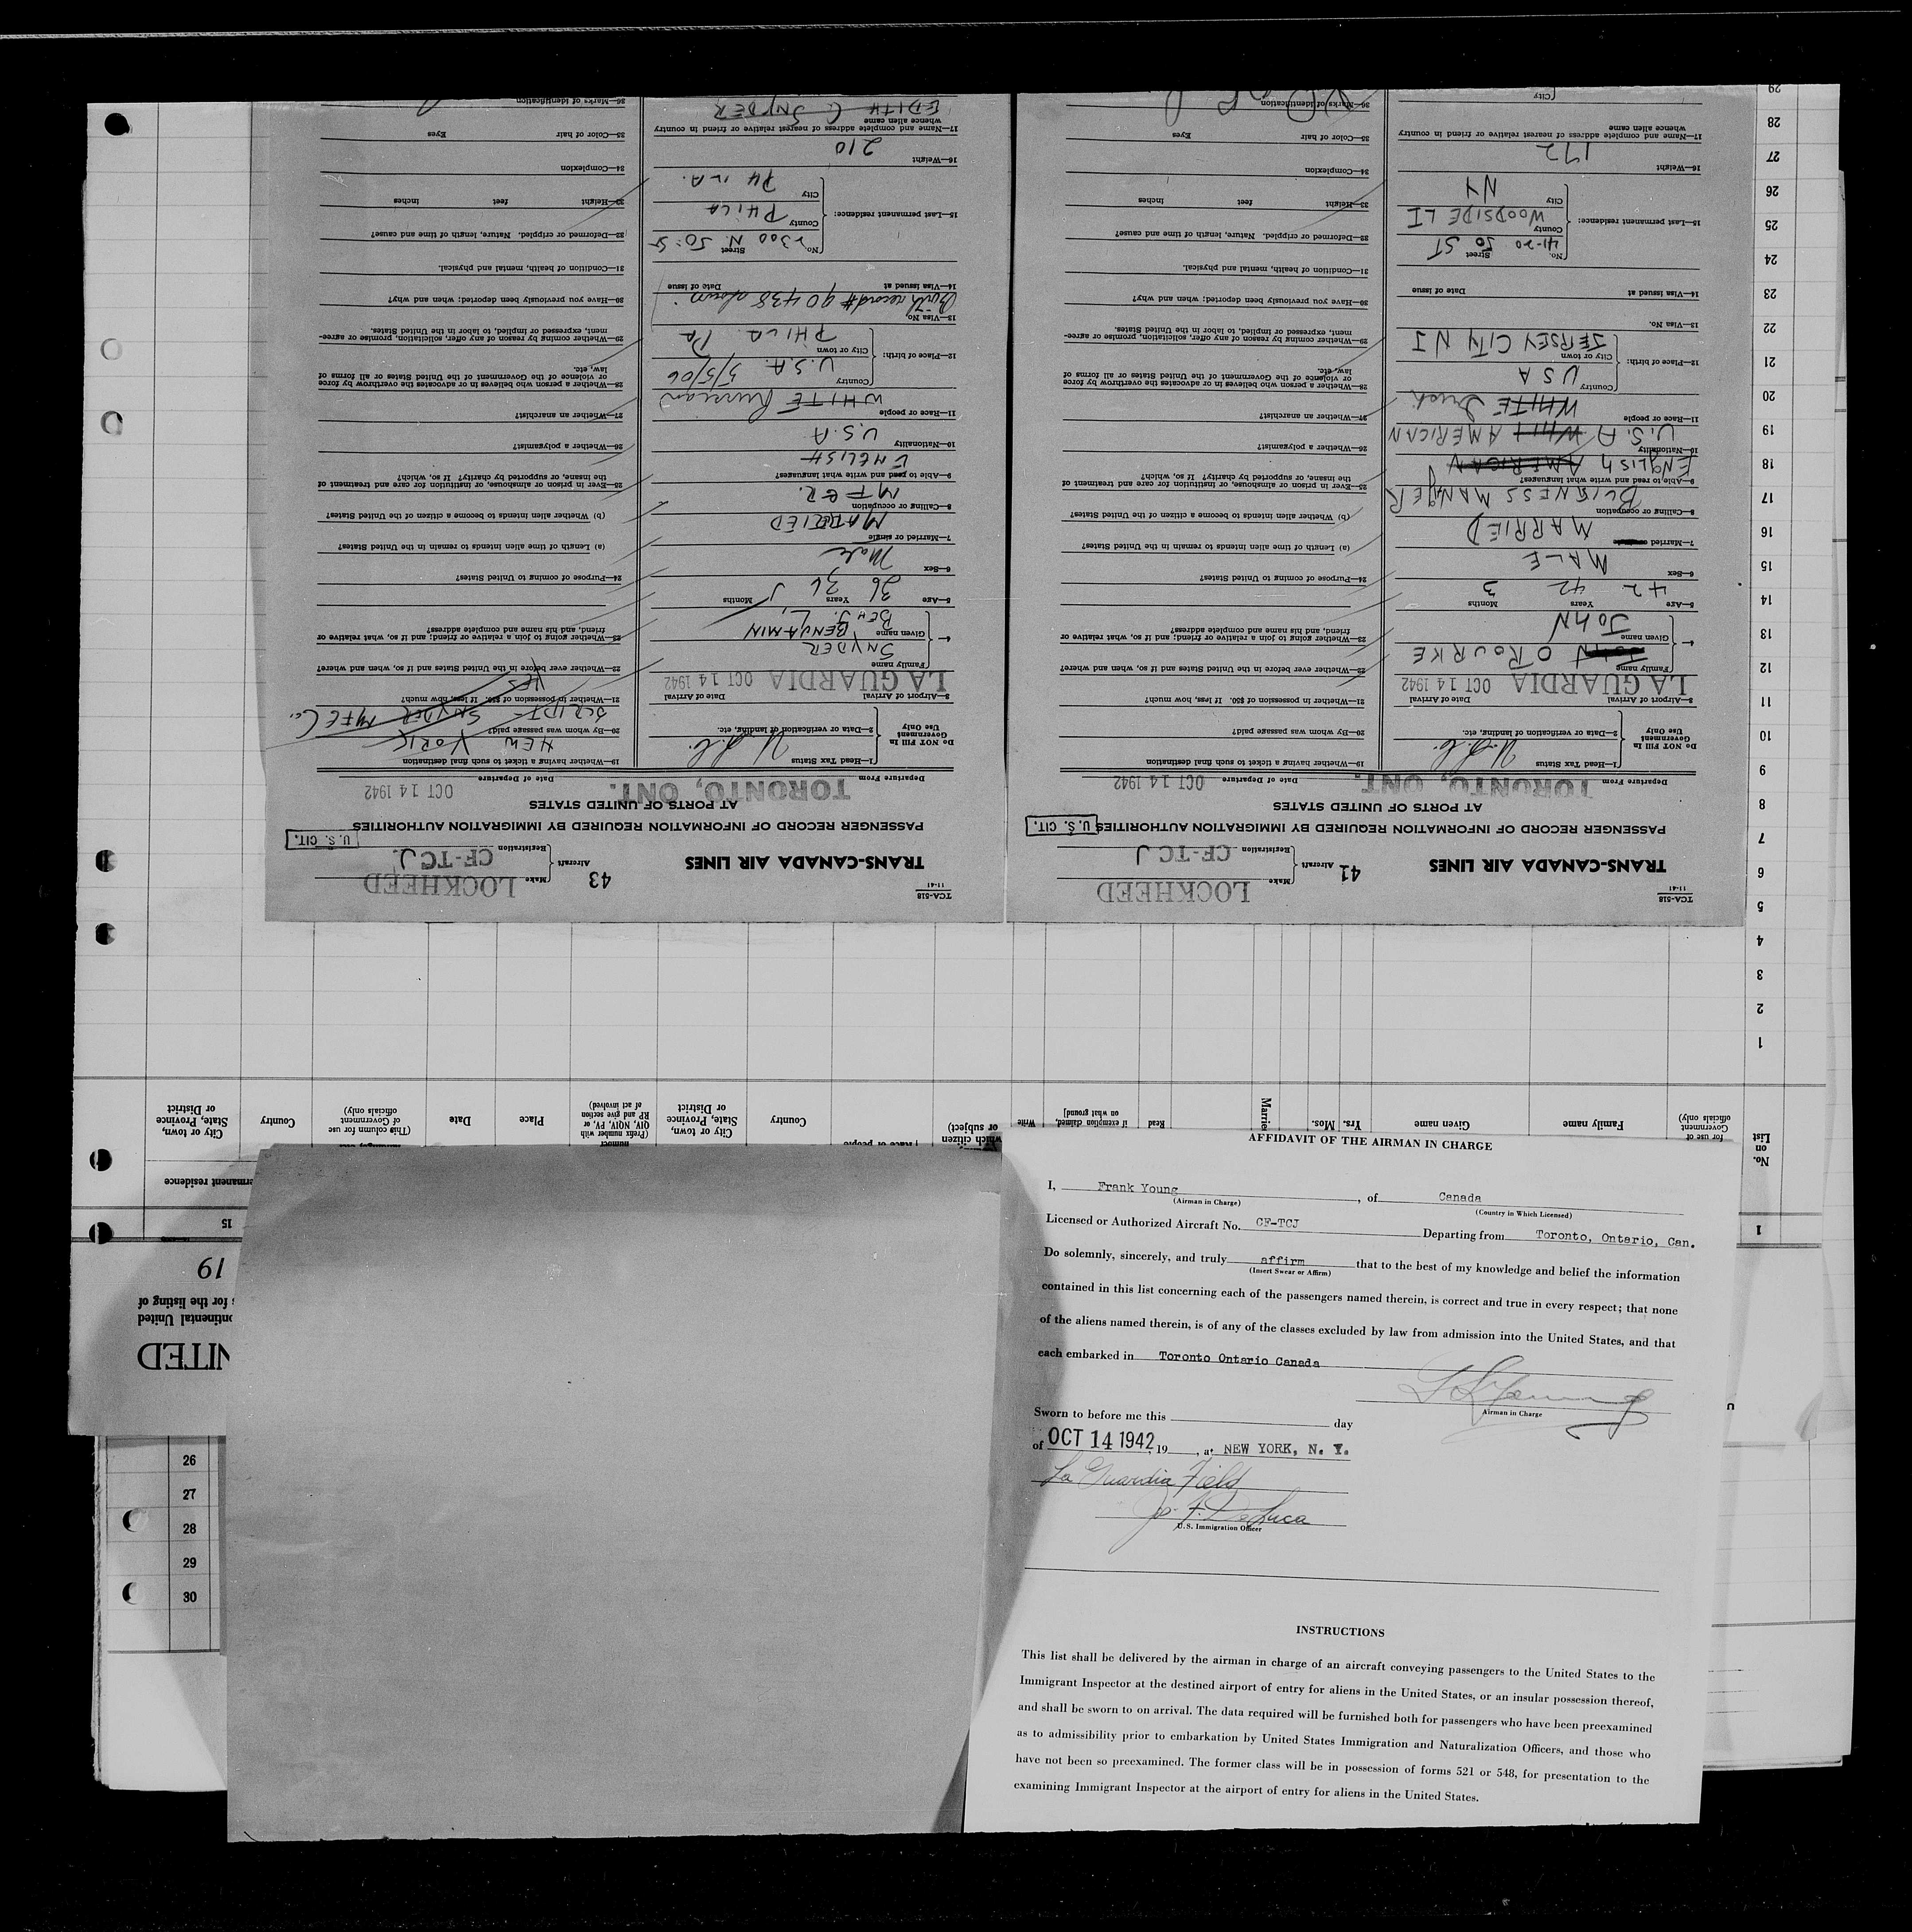 TCA-518
11-41
TRANS-CANADA AIR LINES
41
Aircraft
Make
LOCKHEED
Registration
CF-TCJ
PASSENGER RECORD OF INFORMATION REQUIRED BY IMMIGRATION AUTHORITIES
AT PORTS OF UNITED STATES
U. S. CIT.
Departure From
TORONTO, ONT.
Date of Departure
OCT 14 1942
Do NOT Fill In
Government
Use Only
1—Head Tax Status
2—Data or verification of landing, etc.
3—Airport of Arrival
Date of Arrival
LA GUARDIA OCT 14 1942
4—
Family name
O'ROURKE
Given name
JOHN
5—Age
Years
Months
42 42 3
6—Sex
MALE
7—Married
MARRIED
8—Calling or occupation
BUSINESS MANAGER
9—Able to read and write what languages?
ENGLISH AMERICAN
10—Nationality
U.S.A WHIT AMERICAN
11—Race or people
WHITE Irish
12—Place of birth:
Country
USA
City or town
JERSEY CITY NJ
13—Visa No.
14—Visa issued at
Date of Issue
15—Last permanent residence:
No.
Street
41-20 50 ST
County
WOODSIDE LI
City
NY
16—Weight
172
17—Name and complete address of nearest relative or friend in country
whence alien came
City
19—Whether having a ticket to such final destination
20—By whom was passage paid?
21—Whether in possession of $50. If less, how much?
22—Whether ever before in the United States and if so, when and where?
23—Whether going to join a relative or friend; and if so, what relative or
friend, and his name and complete address?
24—Purpose of coming to United States?
(a) Length of time alien intends to remain in the United States?
(b) Whether alien intends to become a citizen of the United States?
25—Ever in prison or almshouse, or institution for care and treatment of
the insane, or supported by charity? If so, which?
26—Whether a polygamist?
27—Whether an anarchist?
28—Whether a person who believes in or advocates the overthrow by force
or violence of the Government of the United States or all forms of
law, etc.
29—Whether coming by reason of any offer, solicitation, promise or agree-
ment, expressed or implied, to labor in the United States.
30—Have you previously been deported; when and why?
31—Condition of health, mental and physical.
32—Deformed or crippled. Nature, length of time and cause?
33—Height feet inches
34—Complexion
35—Color of hair Eyes
36—Marks of identification
TCA-518
11-41
TRANS-CANADA AIR LINES
43
Aircraft
Make
LOCKHEED
Registration
CF-TCJ.
PASSENGER RECORD OF INFORMATION REQUIRED BY IMMIGRATION AUTHORITIES
AT PORTS OF UNITED STATES
U. S. CIT.
Departure From
TORONTO, ONT.
Date of Departure
OCT 14 1942
Do NOT Fill In
Government
Use Only
1—Head Tax Status
2—Data or verification of landing, etc.
3—Airport of Arrival
Date of Arrival
LA GUARDIA OCT 14 1942
4—
Family name
SNYDER
Given name
BENJAMIN
5—Age
Years
Months
36 36
6—Sex
Male
7—Married or single
MARRIED
8—Calling or occupation
MFER.
9—Able to read and write what languages?
ENGLISH
10—Nationality
U.S.A
11—Race or people
WHITE Russian
12—Place of birth:
Country
U.S.A. 5/5/06
City or town
PHILA. Pa
13—Visa No.
Birth record # 90438 shown
14—Visa issued at
Date of Issue
15—Last permanent residence:
No.
Street
2300 N 50: St
County
PHILA
City
PHILA.
16—Weight
210
17—Name and complete address of nearest relative or friend in country
whence alien came
EDITH C SNYDER
19—Whether having a ticket to such final destination
NEW YORK
20—By whom was passage paid?
SNYDER MFE Co.
21—Whether in possession of $50. If less, how much?
YES
22—Whether ever before in the United States and if so, when and where?
23—Whether going to join a relative or friend; and if so, what relative or
friend, and his name and complete address?
24—Purpose of coming to United States?
(a) Length of time alien intends to remain in the United States?
(b) Whether alien intends to become a citizen of the United States?
25—Ever in prison or almshouse, or institution for care and treatment of
the insane, or supported by charity? If so, which?
26—Whether a polygamist?
27—Whether an anarchist?
28—Whether a person who believes in or advocates the overthrow by force
or violence of the Government of the United States or all forms of
law, etc.
29—Whether coming by reason of any offer, solicitation, promise or agree-
ment, expressed or implied, to labor in the United States.
30—Have you previously been deported; when and why?
31—Condition of health, mental and physical.
32—Deformed or crippled. Nature, length of time and cause?
33—Height feet inches
34—Complexion
35—Color of hair Eyes
36—Marks of identification
No.
on
List
for use of
Government
officials only)
Family name
Given name
Yrs.
Mos.
Marrie
Read
if exemption claimed,
on what ground]
Write
which citizen
or subject)
Country
City or town,
State, Province
or District
number
(Prefix number with
QIV, NQIV, PV, or
RP and give section
of act involved)
Place
Date
(This column for use
of Government
officials only)
Country
City or town,
State, Province
or District
rmanent residence
1
15
1
2
3
4
5
6
7
8
9
10
11
12
13
14
15
16
17
18
19
20
21
22
23
24
25
26
27
28
29
19
for the listing of
ontinental United
NITED
26
27
28
29
30
AFFIDAVIT OF THE AIRMAN IN CHARGE
I, Frank Young, of Canada
(Airman in Charge) (Country in Which Licensed)
Licensed or Authorized Aircraft No. CF-TCJ Departing from Toronto, Ontario, Can.
Do solemnly, sincerely, and truly affirm that to the best of my knowledge and belief the information
(Insert Swear or Affirm)
contained in this list concerning each of the passengers named therein, is correct and true in every respect; that none
of the aliens named therein, is of any of the classes excluded by law from admission into the United States, and that
each embarked in Toronto Ontario Canada
Airman in Charge
Sworn to before me this day
of OCT 14 1942, 19 , at NEW YORK, N. Y.
La Guardia Field
Jos. F. DeLuca
U.S. Immigration Officer
INSTRUCTIONS
This list shall be delivered by the airman in charge of an aircraft conveying passengers to the United States to the
Immigrant Inspector at the destined airport of entry for aliens in the United States, or an insular possession thereof,
and shall be sworn to on arrival. The data required will be furnished both for passengers who have been preexamined
as to admissibility prior to embarkation by United States Immigration and Naturalization Officers, and those who
have not been so preexamined. The former class will be in possession of forms 521 or 548, for presentation to the
examining Immigrant Inspector at the airport of entry for aliens in the United States.